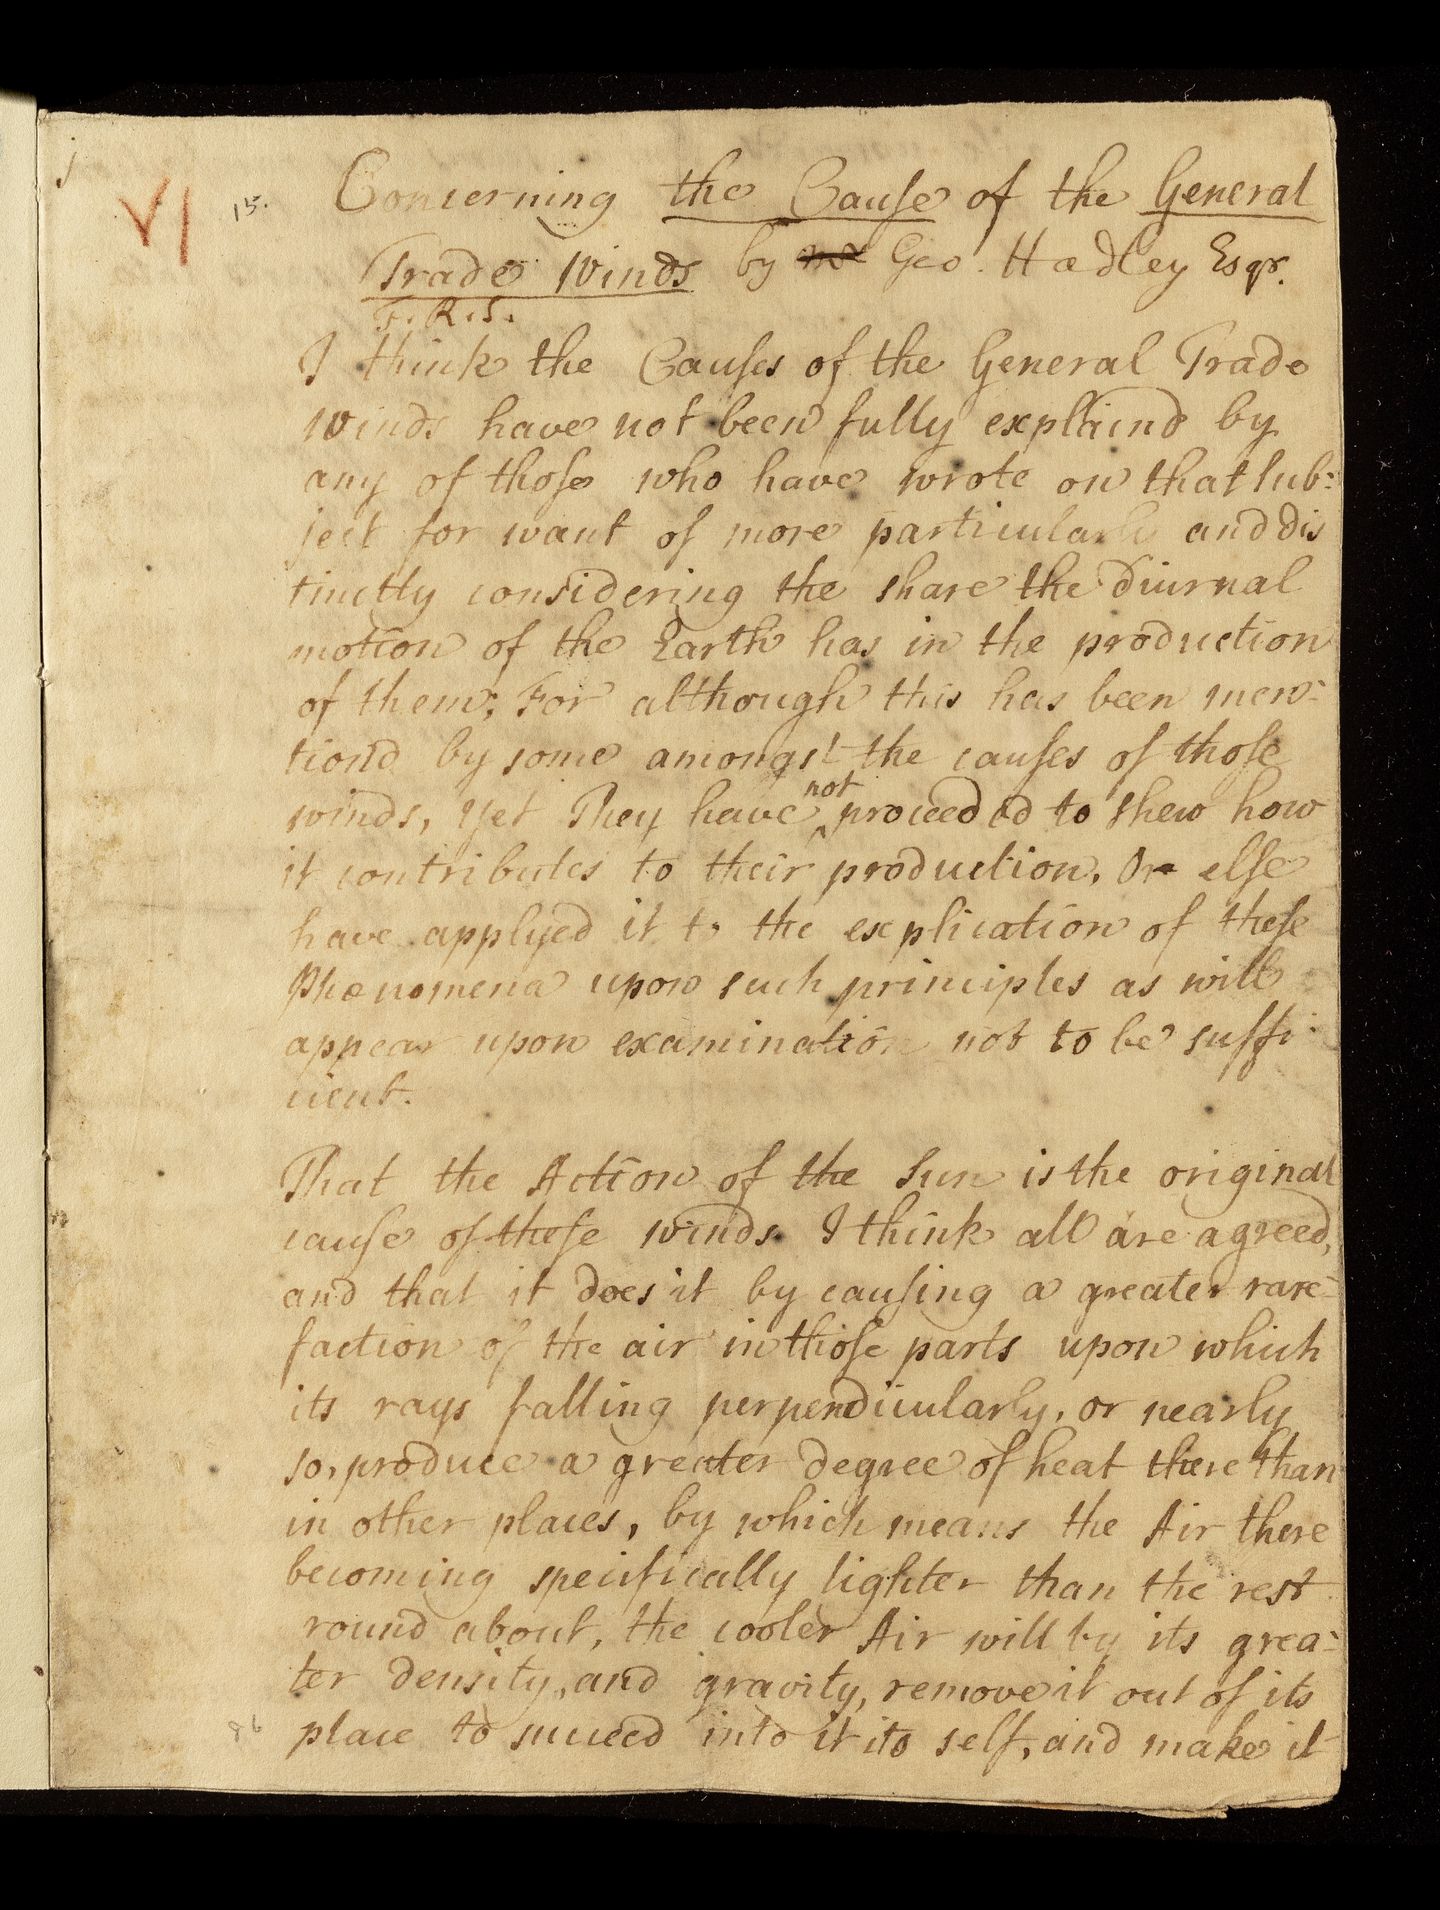 VI 15. Concerning the Cause of the General
Trade Winds by Mr Geo. Hadley Esqr.
F.R.S.
I think the Causes of the General Trade
Winds have not been fully explaind by
any of those who have wrote on that sub-
ject for want of more particularly and dis
tinctly considering the share the diurnal
motion of the Earth has in the production
of them; For although this has been men-
tiond by some amongst the causes of those
winds, yet They have not proceeded to shew how
it contributes to their production, Or else
have applyed it to the explication of these
Phænomena upon such principles as will
appear upon examination not to be suffi-
cient.
That the Action of the Sun is the original
cause of these Winds I think all are agreed,
and that it does it by causing a greater rare-
faction of the air in those parts upon which
its rays falling perpendicularly, or nearly
so, produce a greater degree of heat there than
in other places, by which means the Air there
becoming specifically lighter than the rest
round about, the cooler Air will by its grea-
ter density, and gravity, remove it out of its
place to succeed into it its self, and make it